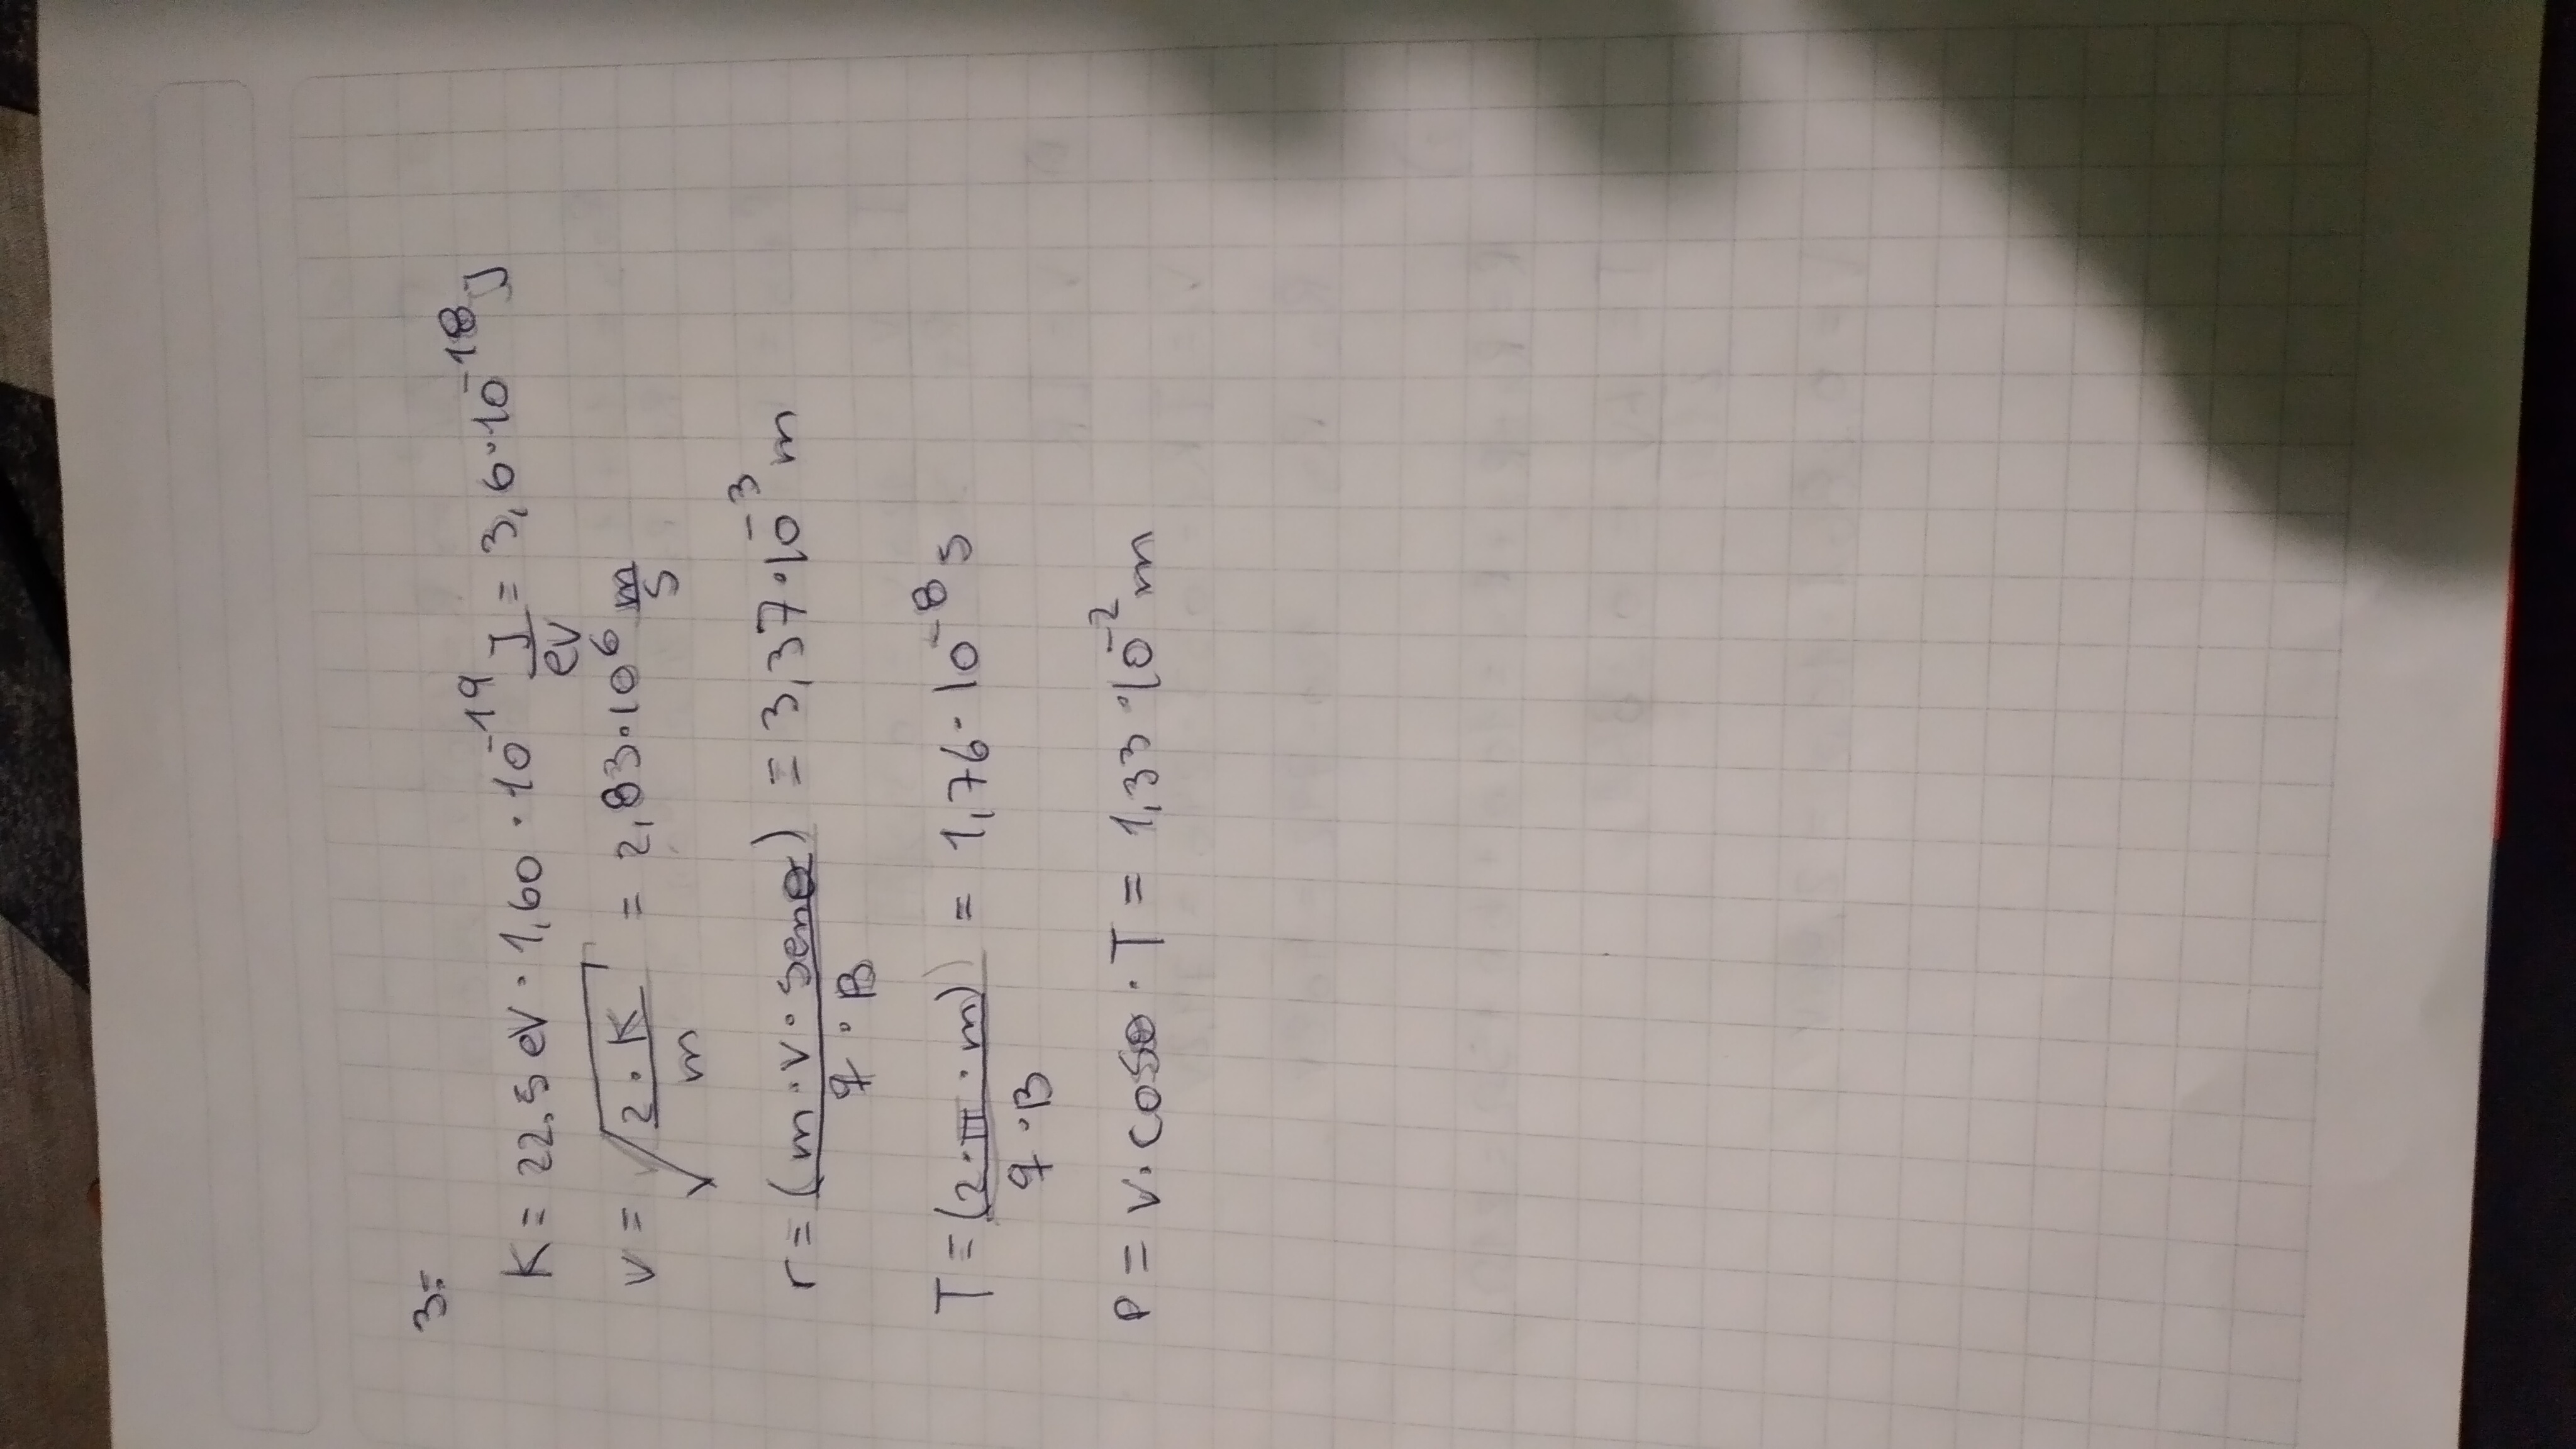 3=
K = 22,5 eV · 1,60 · 10^-19 J/eV = 3,6 · 10^-18 J
v = √(2 · K / m) = 2,83 · 10^6 m/s
r = (m · v · senθ) / q · B = 3,37 · 10^-3 m
T = (2 · π · m) / q · B = 1,76 · 10^-8 s
P = v · cosθ · T = 1,33 · 10^-2 m